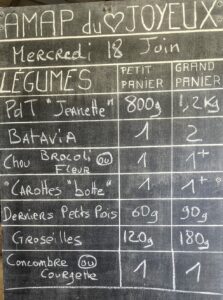 AMAP du ♡ JOYEUX
Mercredi 18 Juin
LÉGUMES PETIT PANIER GRAND PANIER
PdT "Jeanette" 800g 1,2Kg
BATAVIA 1 2
Chou BROCOLI ou FLEUR 1 1+
"CAROTTES "botte" 1 1+
DERNIERS PETITS POIS 60g 90g
GROSEILLES 120g 180g
CONCOMBRE ou COURGETTE 1 1